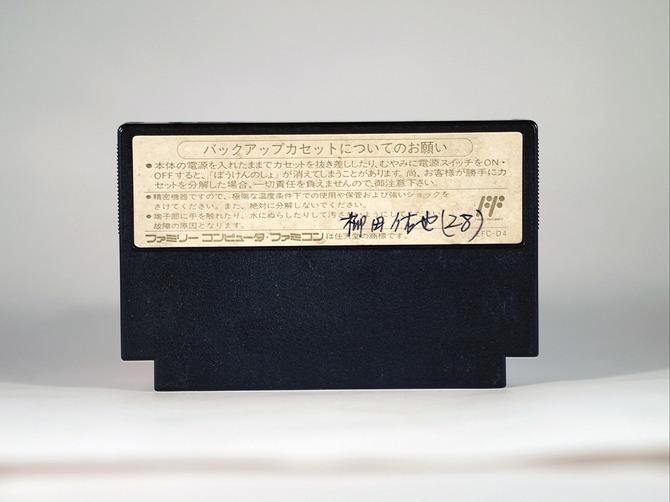 バックアップカセットについてのお願い
●本体の電源を入れたままでカセットを抜き差ししたり、むやみに電源スイッチをON・
OFFすると、「ぼうけんのしょ」が消えてしまうことがあります。尚、お客様が勝手にカ
セットを分解した場合、一切責任を負えませんので、御注意下さい。
●精密機器ですので、極端な温度条件下での使用や保管および強いショックを
さけてください。また、絶対に分解しないでください。
●端子部に手を触れたり、水にぬらしたりして汚さ
故障の原因となります。
ファミリーコンピュータ・ファミコンは任天堂の商標です。
柳田佑也(28)
EFC-D4